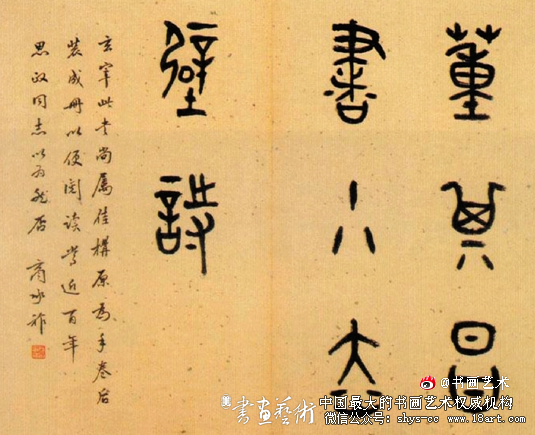 董其昌
書小赤
壁詩
玄宰此書尚屬佳構原為手卷后
裝成冊以便閱讀當近百年
思政同志以為然否 商承祚
@书画艺术
書畫藝術
中国最大的书画艺术权威机构
微信公众号: shys-cc - www.18art.com